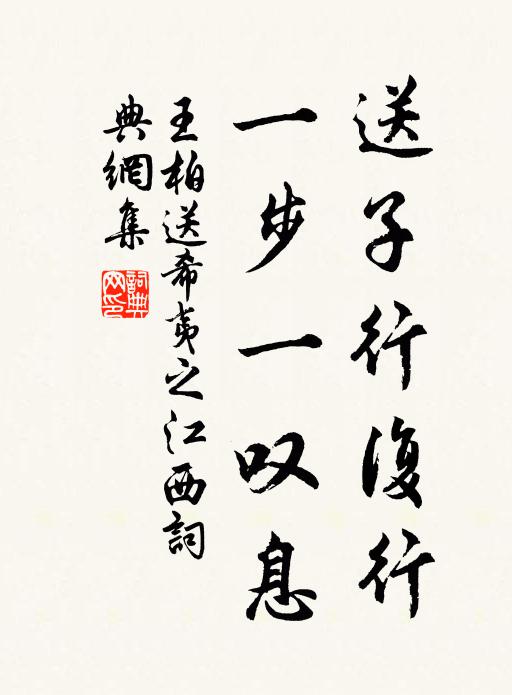 送子行復行
一步一叹息
王柏送希夷之江西詞
典網集
詞典
网印